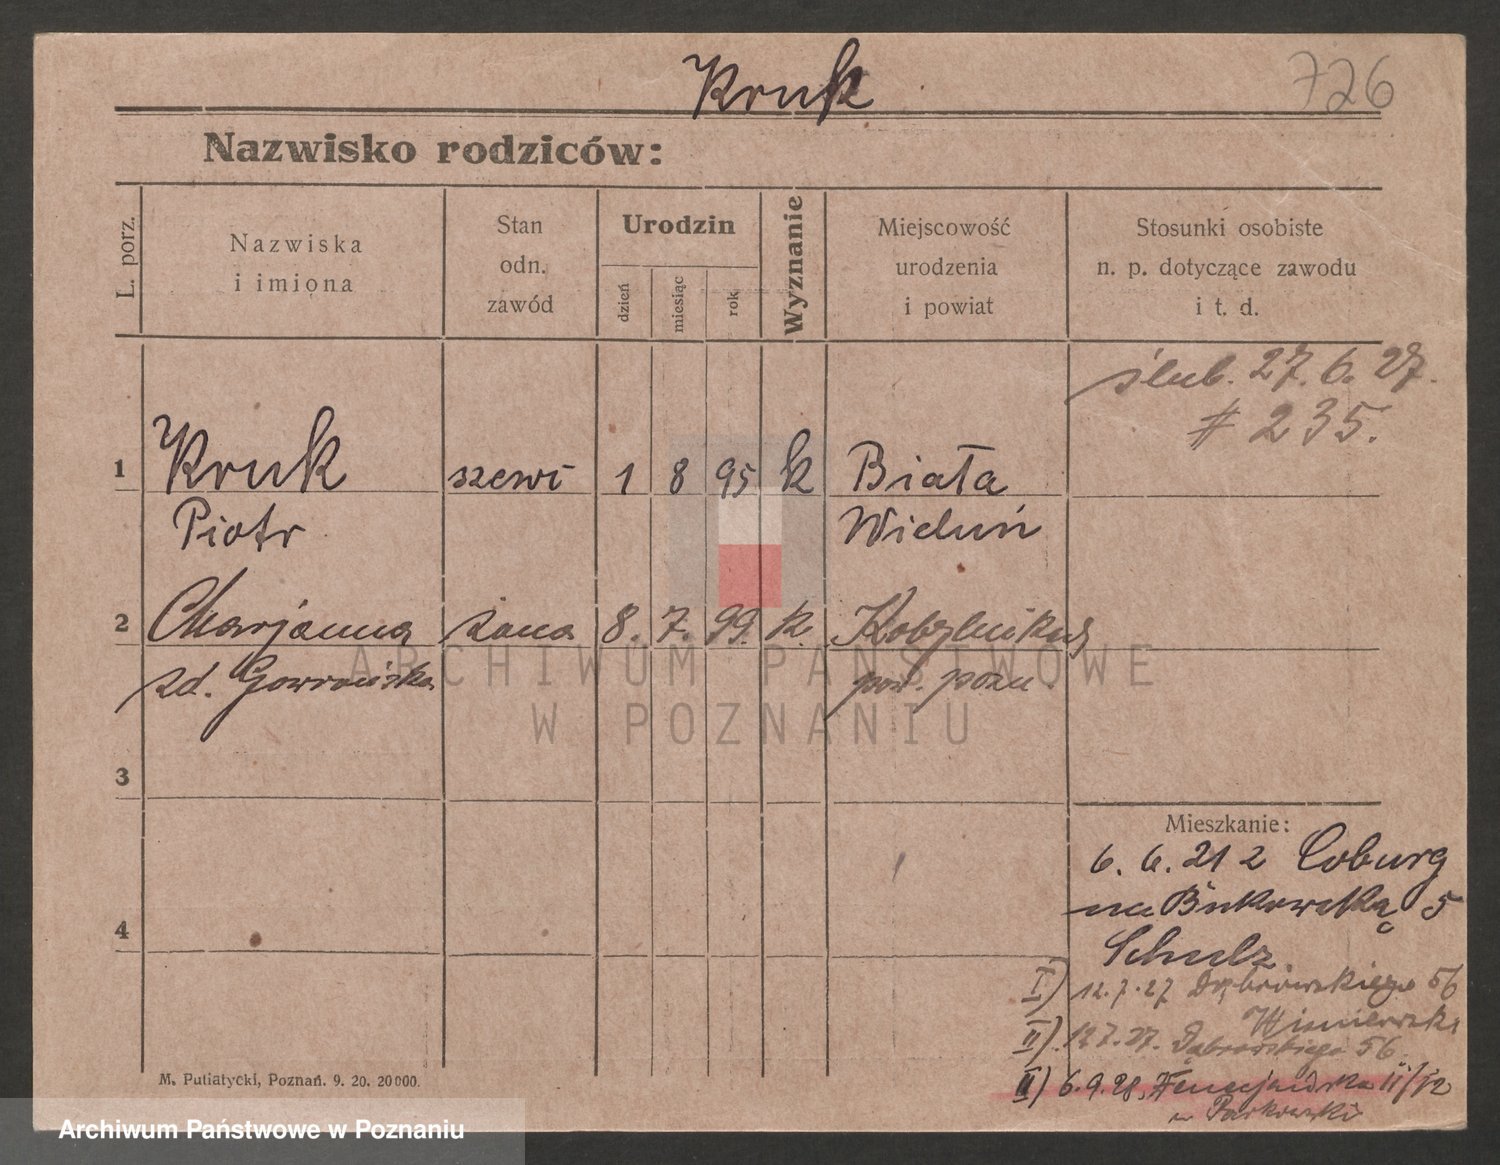 Kruk
726
Nazwisko rodziców:
L. porz.
Nazwiska
i imiona
Stan
odn.
zawód
Urodzin
dzień
miesiąc
rok
Wyznanie
Miejscowość
urodzenia
i powiat
Stosunki osobiste
n. p. dotyczące zawodu
i t. d.
ślub. 27.6.27.
# 235.
1 Kruk szewc 1 8 95 k Biała
Piotr Wieluń
2 Marjanna żona 8. 7. 99. k.
zd. Gowrońska pow. pozn.
ARCHIWUM PAŃSTWOWE
W POZNANIU
3
Mieszkanie:
6. 6. 21 z Coburg
na Bukowską 5
4
Schulz
I) 12.7.27 Dąbrowskiego 56
Wisniewski
II) 12.7.27. Dąbrowskiego 56
6.9.28, Wenecjańska
Parkowski
M. Putiatycki, Poznań. 9. 20. 20000.
Archiwum Państwowe w Poznaniu